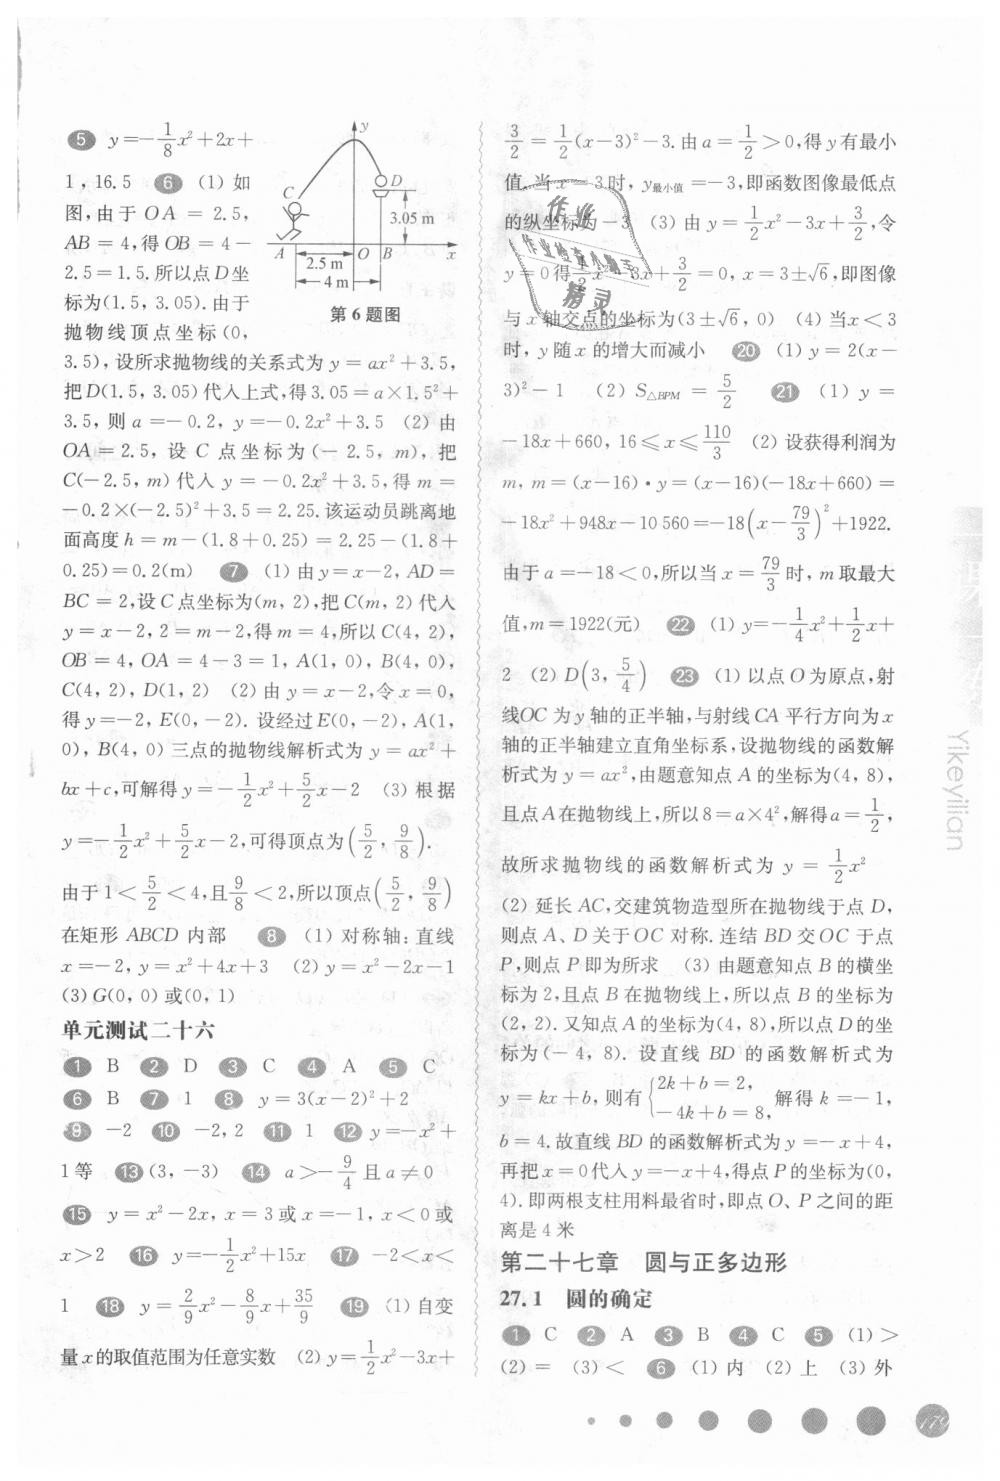 5 y=-1/8x²+2x+
1，16.5 6 (1) 如
图,由于 OA = 2.5,
AB = 4,得 OB = 4 -
2.5=1.5. 所以点 D 坐
标为(1.5, 3.05). 由于
抛物线顶点坐标 (0,
y
C
D
3.05 m
A
O
B
x
2.5 m
4 m
第 6 题图
3.5), 设所求抛物线的关系式为 y = ax² + 3.5,
把 D(1.5, 3.05) 代入上式,得 3.05 = a×1.5² +
3.5, 则 a =- 0.2, y =- 0.2x² + 3.5 (2) 由
OA = 2.5, 设 C 点坐标为 (- 2.5, m), 把
C(- 2.5, m) 代入 y = - 0.2x² + 3.5, 得 m =
- 0.2×(- 2.5)² + 3.5 = 2.25. 该运动员跳离地
面高度 h = m - (1.8 + 0.25) = 2.25 - (1.8 +
0.25) = 0.2(m) 7 (1) 由 y = x - 2, AD =
BC = 2,设 C 点坐标为(m, 2),把 C(m, 2) 代入
y = x - 2, 2 = m - 2,得 m = 4,所以 C(4, 2),
OB = 4, OA = 4 - 3 = 1, A(1, 0), B(4, 0),
C(4, 2), D(1, 2) (2) 由 y = x - 2,令 x = 0,
得 y =- 2, E(0, - 2). 设经过 E(0, - 2), A(1,
0), B(4, 0) 三点的抛物线解析式为 y = ax² +
bx + c,可解得 y = - 1/2x² + 5/2x - 2 (3) 根据
y =- 1/2x² + 5/2x - 2,可得顶点为(5/2, 9/8).
由于 1 < 5/2 < 4,且 9/8 < 2,所以顶点(5/2, 9/8)
在矩形 ABCD 内部 8 (1) 对称轴: 直线
x =- 2, y = x² + 4x + 3 (2) y = x² - 2x - 1
(3) G(0, 0) 或(0, 1)
单元测试二十六
1 B 2 D 3 C 4 A 5 C
6 B 7 1 8 y = 3(x - 2)² + 2
9 -2 10 -2, 2 11 1 12 y =- x² +
1 等 13 (3, -3) 14 a >- 9/4 且 a ≠ 0
15 y = x² - 2x, x = 3 或 x =- 1, x < 0 或
x > 2 16 y =- 1/2x² + 15x 17 -2 < x <
1 18 y = 2/9x² - 8/9x + 35/9 19 (1) 自变
量 x 的取值范围为任意实数 (2) y = 1/2x² - 3x +
3/2 = 1/2(x - 3)² - 3. 由 a = 1/2 > 0,得 y 有最小
值.当 x = 3 时, y最小值 =- 3,即函数图像最低点
的纵坐标为 - 3 (3) 由 y = 1/2x² - 3x + 3/2,令
y = 0 得 1/2x² - 3x + 3/2 = 0, x = 3±√6,即图像
与 x 轴交点的坐标为(3±√6, 0) (4) 当 x < 3
时, y 随 x 的增大而减小 20 (1) y = 2(x -
3)² - 1 (2) S△BPM = 5/2 21 (1) y =
- 18x + 660, 16 ⩽ x ⩽ 110/3 (2) 设获得利润为
m, m = (x - 16)·y = (x - 16)(- 18x + 660) =
- 18x² + 948x - 10 560 =- 18(x - 79/3)² + 1922.
由于 a =- 18 < 0,所以当 x = 79/3 时, m 取最大
值,m = 1922(元) 22 (1) y =- 1/4x² + 1/2x +
2 (2) D(3, 5/4) 23 (1) 以点 O 为原点,射
线OC 为 y 轴的正半轴,与射线 CA 平行方向为 x
轴的正半轴建立直角坐标系,设抛物线的函数解
析式为 y = ax²,由题意知点 A 的坐标为(4, 8),
且点 A 在抛物线上,所以 8 = a×4²,解得 a = 1/2,
故所求抛物线的函数解析式为 y = 1/2x²
(2) 延长 AC,交建筑物造型所在抛物线于点 D,
则点 A、D 关于 OC 对称. 连结 BD 交 OC 于点
P,则点 P 即为所求 (3) 由题意知点 B 的横坐
标为 2,且点 B 在抛物线上,所以点 B 的坐标为
(2, 2). 又知点 A 的坐标为(4, 8),所以点 D 的坐
标为 (- 4, 8). 设直线 BD 的函数解析式为
y = kx + b, 则有 {2k + b = 2, - 4k + b = 8, 解得 k =- 1,
b = 4. 故直线 BD 的函数解析式为 y =- x + 4,
再把 x = 0 代入 y =- x + 4,得点 P 的坐标为(0,
4). 即两根支柱用料最省时,即点 O、P 之间的距
离是 4 米
第二十七章 圆与正多边形
27.1 圆的确定
1 C 2 A 3 B 4 C 5 (1) >
(2) = (3) < 6 (1) 内 (2) 上 (3) 外
作业
作业检查小助手
精灵
Yikeyilian
179